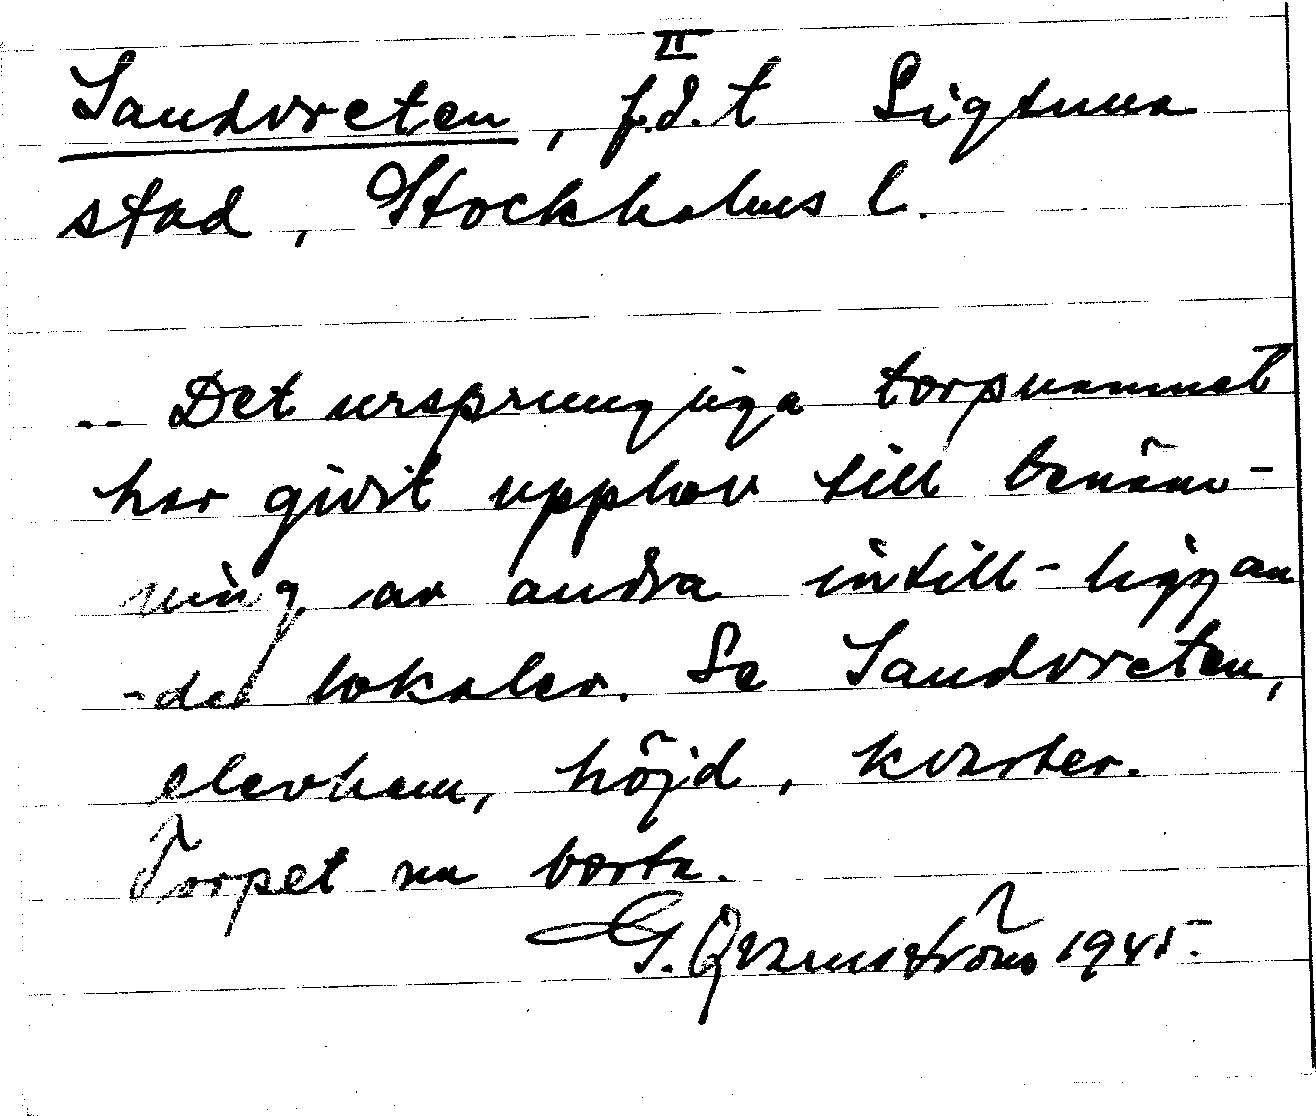 II
Sandvreten, f.d. t Sigtuna
stad, Stockholms l.
-- Det ursprungliga torpnamnet
har givit upphov till benäm-
ning av andra intill-liggan
-de lokaler. Se Sandvreten,
elevhem, höjd, kvarter.
Torpet nu borta.
G. Qvarnström 1945.